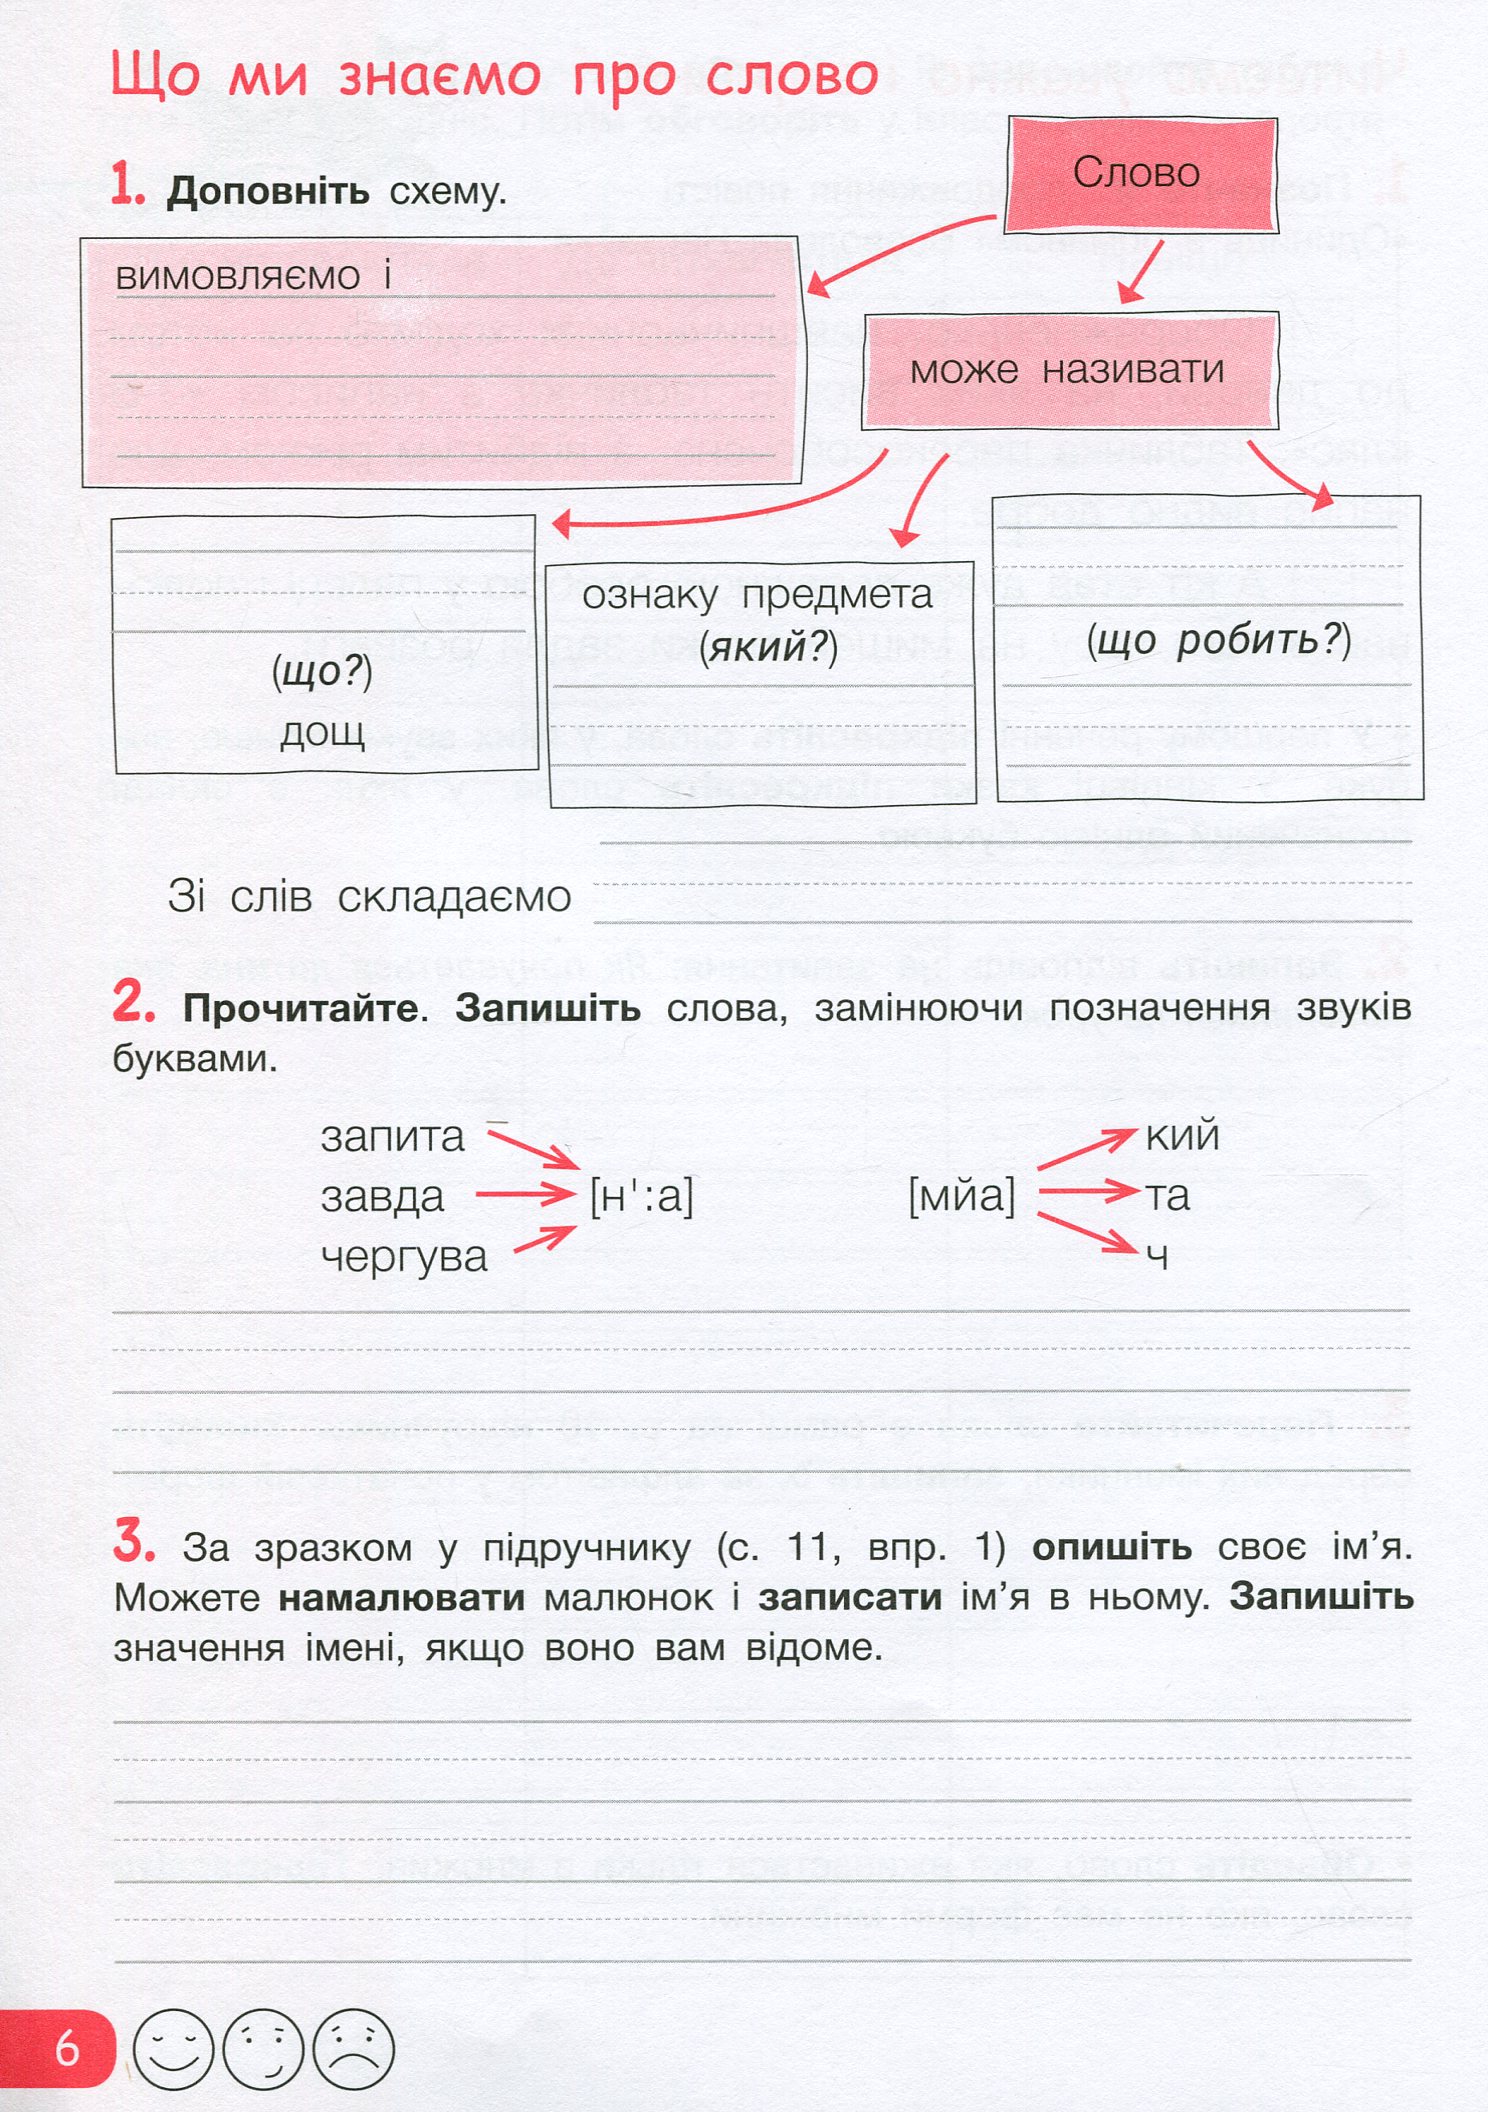 Що ми знаємо про слово
Слово
1. Доповніть схему.
вимовляємо і
може називати
(що?)
дощ
ознаку предмета
(який?)
(що робить?)
Зі слів складаємо
2. Прочитайте. Запишіть слова, замінюючи позначення звуків
буквами.
запита
завда
чергува
[н':а]
[мйа]
кий
та
ч
3. За зразком у підручнику (с. 11, впр. 1) опишіть своє ім’я.
Можете намалювати малюнок і записати ім’я в ньому. Запишіть
значення імені, якщо воно вам відоме.
6